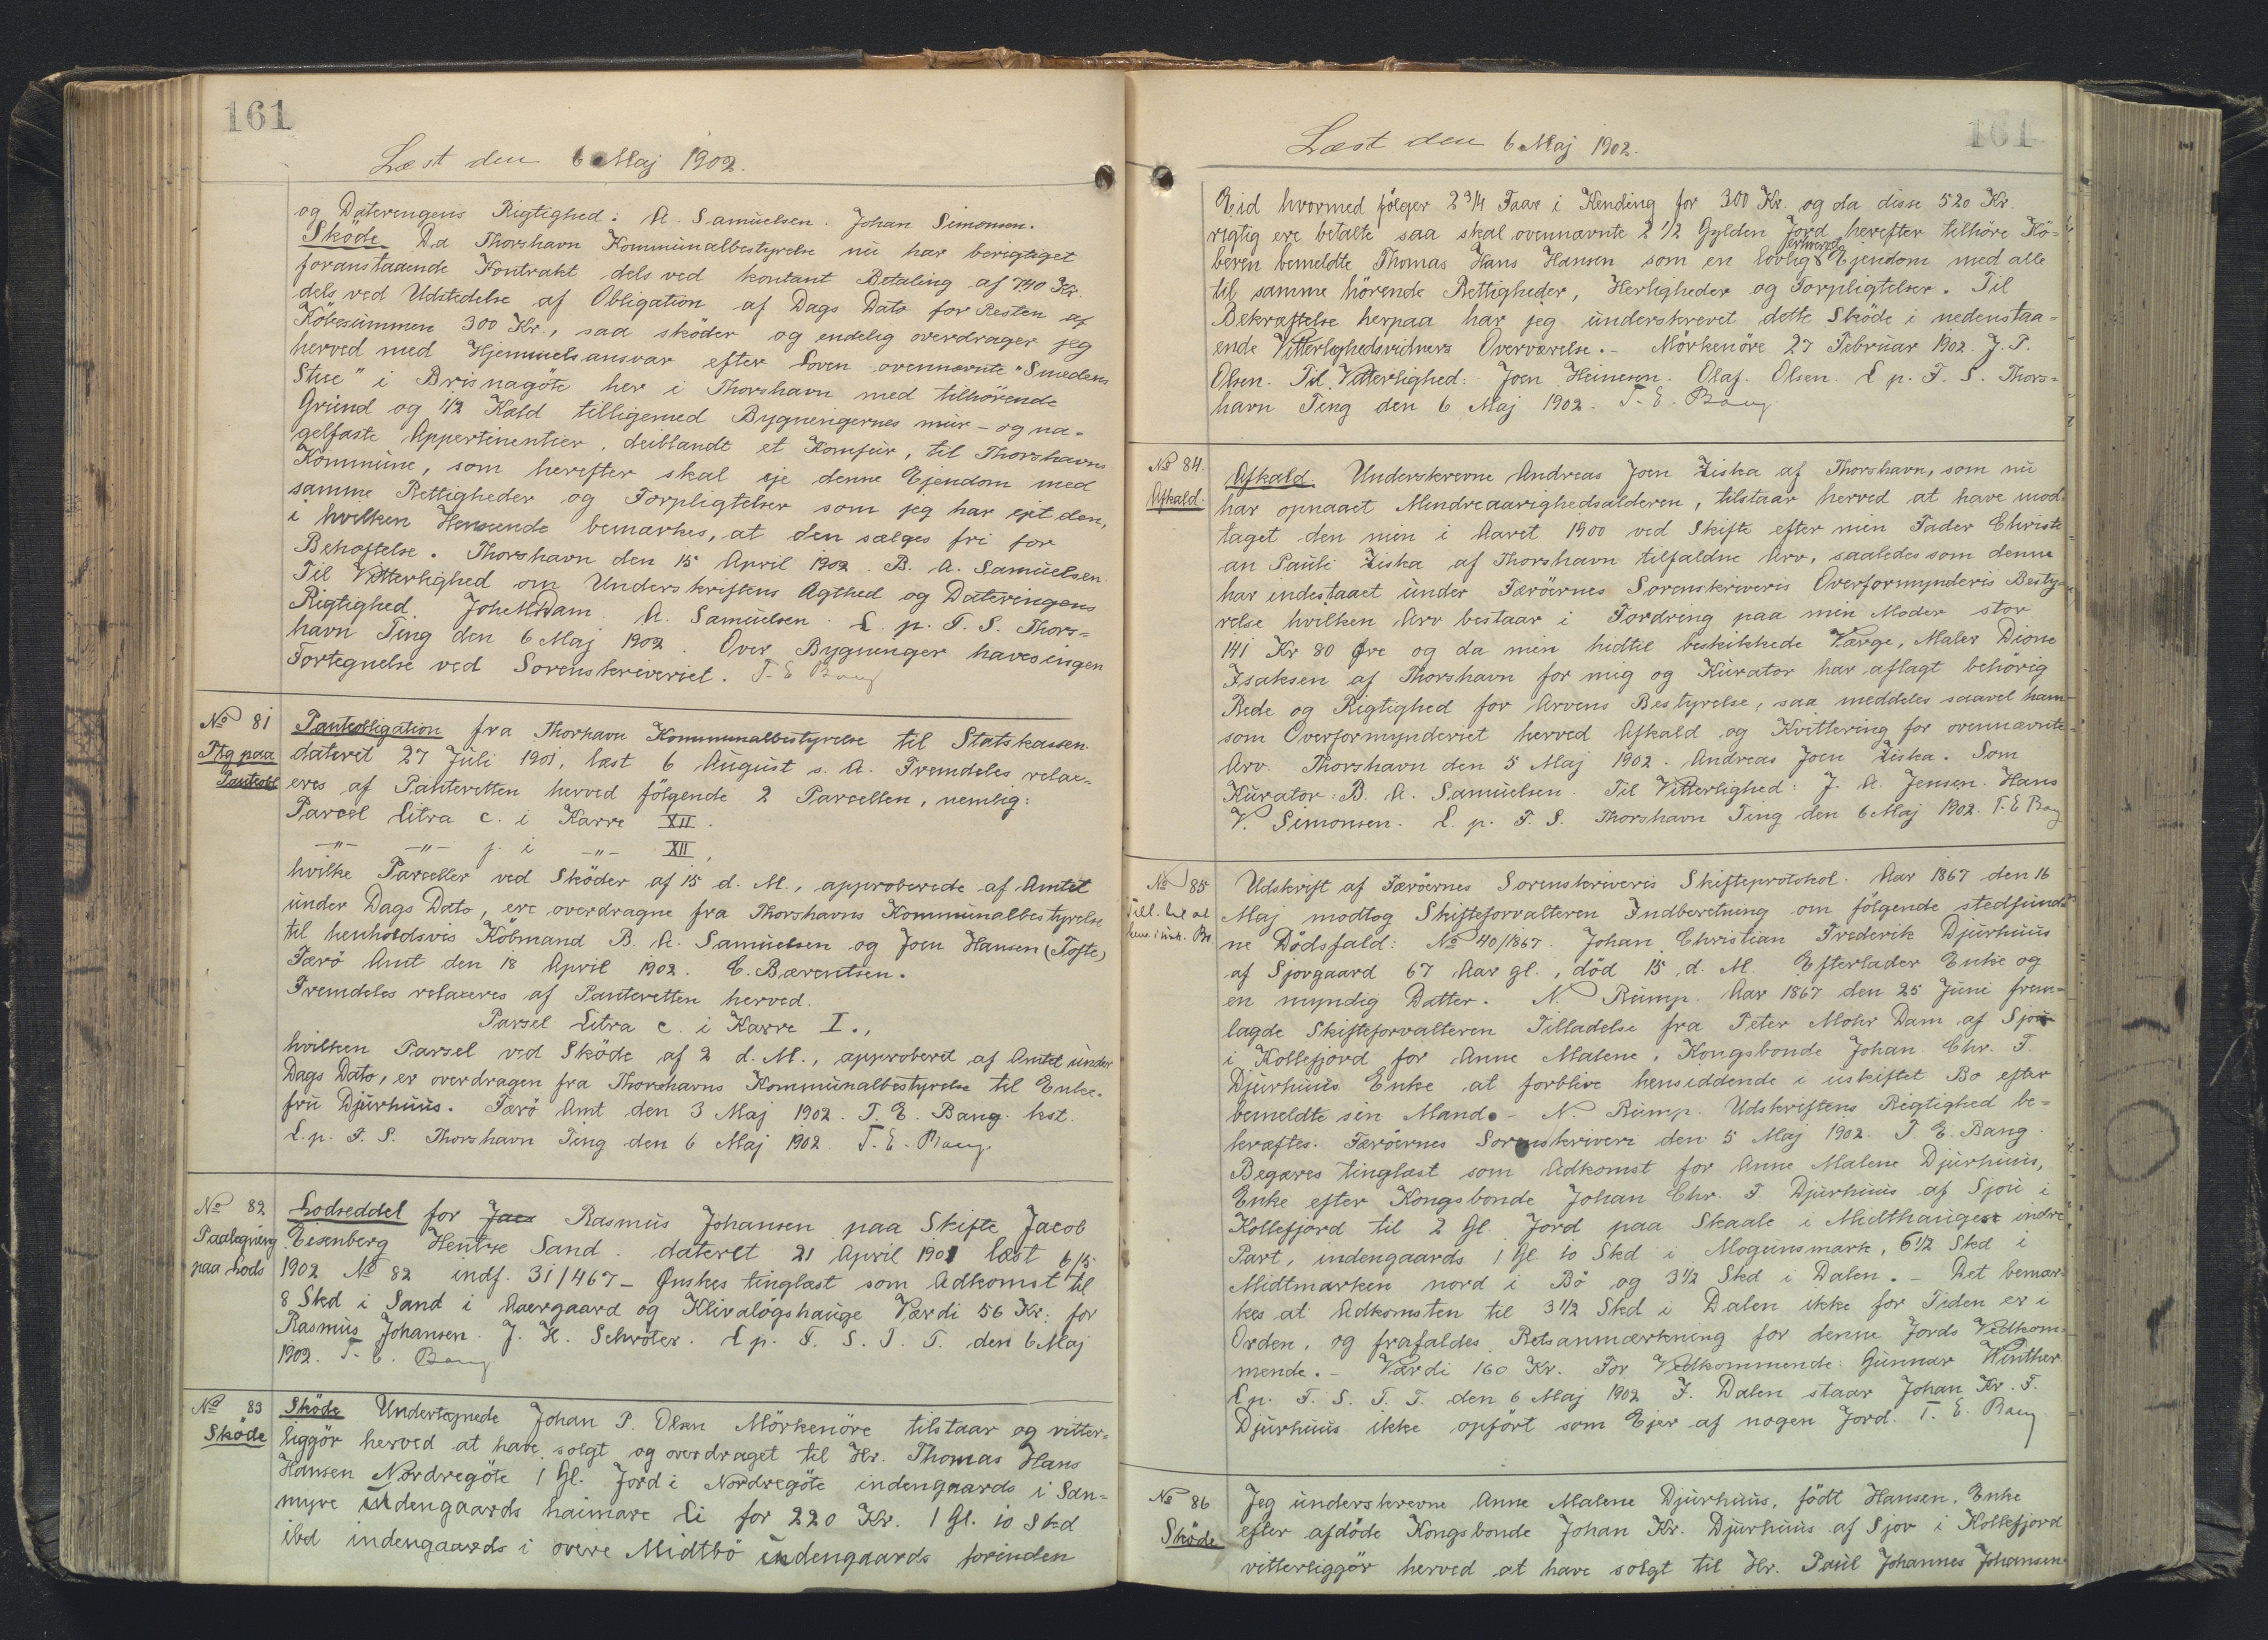 161
Læst den 6 Maj 1902.
og Dateringens Rigtighed: A. Samuelsen. Johan Simonsen.
Sköde Da Thorshavn Kommunalbestyrelse nu har berigtiget
foranstaaende Kontrakt dels ved kontant Betaling af 740 Kr.
dels ved Udstedelse af Obligation af Dags Dato for Resten af
Köbesummen 300 Kr., saa sköder og endelig overdrager jeg
herved med Hjemmelsansvar efter Loven ovennævnte "Smedens
Stue" i Brisnagöte her i Thorshavn med tilhörende
Grund og 1/2 Kald tilligemed Bygningernes mur- og na-
gelfaste Appertinentier, deiblandt et Komfur, til Thorshavns
Kommune, som herefter skal eje denne Ejendom med
samme Rettigheder og Forpligtelser som jeg har ejet den,
i hvilken Henseende bemærkes, at den sælges fri for
Behæftelse. Thorshavn den 15 April 1902. B. A. Samuelsen.
Til Vitterlighed om Underskriftens Ægthed og Dateringens
Rigtighed. Joh. M. Dam. A. Samuelsen. L. p. F. S. Thors=
havn Ting den 6 Maj 1902. Over Bygninger haves ingen
Fortegnelse ved Sorenskriveriet. T. E. Bang
No 81
Ptg paa
Panteobl
Panteobligation fra Thorhavn Kommunalbestyrelse til Statskassen
dateret 27 Juli 1901, læst 6 August s. A. Fremdeles relax-
eres af Panteretten herved fölgende 2 Parceller, nemlig:
Parcel Litra c. i Karre XII.
-"- -"- j. i -"- XII,
hvilke Parceller ved Sköder af 15 d. M., approberede af Amtet
under Dags Dato, ere overdragne fra Thorshavns Kommunalbestyrelse
til henholdsvis Köbmand B. A. Samuelsen og Joen Hansen (Tofte)
Færö Amt den 18 April 1902. C. Bærentsen.
Fremdeles relaxeres af Panteretten herved.
Parsel Litra c. i Karre I.,
hvilken Parsel ved Sköde af 2 d. M., approberet af Amtet under
Dags Dato, er overdragen fra Thorshavns Kommunalbestyrelse til Enke-
fru Djurhuus. Færö Amt den 3 Maj 1902. T. E. Bang. kst.
L. p. F. S. Thorshavn Ting den 6 Maj 1902. T. E. Bang.
No 82
Paategning
paa Lods
Lodseddel for Jacs Rasmus Johansen paa Skifte Jacob
Eisenberg Hentze Sand. dateret 21 April 1901 læst 6/5
1902 No 82 indf. 31/467- Önskes tinglæst som Adkomst til
8 Skd i Sand i Aaergaard og Klivalögshauge Værdi 56 Kr: for
Rasmus Johansen. J. H. Schröter. L p. F. S. T. T. den 6 Maj
1902. T. E. Bang
No 83
Sköde
Sköde Undertegnede Johan P. Olsen Mörkenöre tilstaar og vitter=
liggör herved at have solgt og overdraget til Hr. Thomas Hans
Hansen Nordregöte 1 Gl. Jord i Nordregöte indengaards i San=
myre indengaards haimare Li for 220 Kr. 1 Gl. 10 Skd
ibd indengaards i overe Midtbö indengaards forinden
161
Læst den 6 Maj 1902.
Eid hvormed fölger 2 3/4 Faar i Kending for 300 Kr. og da disse 520 Kr.
rigtig ere betalte saa skal ovennævnte 2 1/2 Gylden Jord herefter tilhöre Kö=
beren bemeldte Thomas Hans Hansen som en lovlig erhvervet Ejendom med alle
til samme hörende Rettigheder, Herligheder og Forpligtelser. Til
Bekræftelse herpaa har jeg underskrevet dette Sköde i nedenstaa=
ende Vitterlighedsvidners Overværelse. - Mörkenöre 27 Februar 1902. J. P.
Olsen. Til Vitterlighed: Joen Heinesen. Olaf. Olsen. L p. F. S. Thors=
havn Ting den 6 Maj 1902. T. E. Bang.
No 84.
Afkald.
Afkald. Underskrevne Andreas Joen Ziska af Thorshavn, som nu
har opnaaet Mindreaarighedsalderen, tilstaar herved at have mod=
taget den min i Aaret 1900 ved Skifte efter min Fader Christi
an Pauli Ziska af Thorshavn tilfaldne Arv, saaledes som denne
har indestaaet under Færöernes Sorenskriveris Overformynderis Besty=
relse hvilken Arv bestaar i Fordring paa min Moder stor
141 Kr 80 Øre og da min hidtil beskikkede Værge, Maler Dione
Isaksen af Thorshavn for mig og Kurator har aflagt behörig
Rede og Rigtighed for Arvens Bestyrelse, saa meddeles saavel ham
som Overformynderiet herved Afkald og Kvittering for ovennævnte
Arv. Thorshavn den 5 Maj 1902. Andreas Joen Ziska. Som
Kurator: B. A. Samuelsen. Til Vitterlighed: J. A. Jensen. Hans
V. Simonsen. L. p. F. S. Thorshavn Ting den 6 Maj 1902. T. E Bang
No 85
Till. til at
hens. i usk. Bo.
Udskrift af Færöernes Sorenskriveris Skifteprotokol. Aar 1867 den 16
Maj modtog Skifteforvalteren Indberetning om fölgende stedfund=
ne Dödsfald: No 40/1867. Johan Christian Frederik Djurhuus
af Sjovgaard 67 Aar gl., död 15 d. M. Efterlader Enke og
en myndig Datter. N. Rump. Aar 1867 den 25 Juni frem=
lagde Skifteforvalteren Tilladelse fra Peter Mohr Dam af Sjou
i Kollefjord for Anne Malene, Kongsbonde Johan Chr. F.
Djurhuus Enke at forblive hensiddende i uskiftet Bo efter
bemeldte sin Mand. - N. Rump. Udskriftens Rigtighed be=
kræftes. Færöernes Sorenskriveri den 5 Maj 1902. T. E. Bang.
Begæres tinglæst som Adkomst for Anne Malene Djurhuus,
Enke efter Kongsbonde Johan Chr. F. Djurhuus af Sjou i
Kollefjord til 2 Gl. Jord paa Skaale i Midthauge indre
Part, indengaards 1 Gl. 10 Skd i Mogunsmark, 6 1/2 Skd i
Midtmarken nord i Bö og 3 1/2 Skd i Dalen. - Det bemær=
kes at Adkomsten til 3 1/2 Skd i Dalen ikke for Tiden er i
Orden, og frafaldes Retsanmærkning for denne Jords Vedkom=
mende. - Værdi 160 Kr. For Vedkommende: Gunnar Winther
L p. F. S. T. T. den 6 Maj 1902 I. Dalen staar Johan Kr. F.
Djurhuus ikke opfört som Ejer af nogen Jord. T. E. Bang
No 86
Sköde
Jeg underskrevne Anne Malene Djurhuus, födt Hansen, Enke
efter afdöde Kongsbonde Johan Kr. Djurhuus af Sjov i Kollefjord
vitterliggör herved at have solgt til Hr. Paul Johannes Johansen